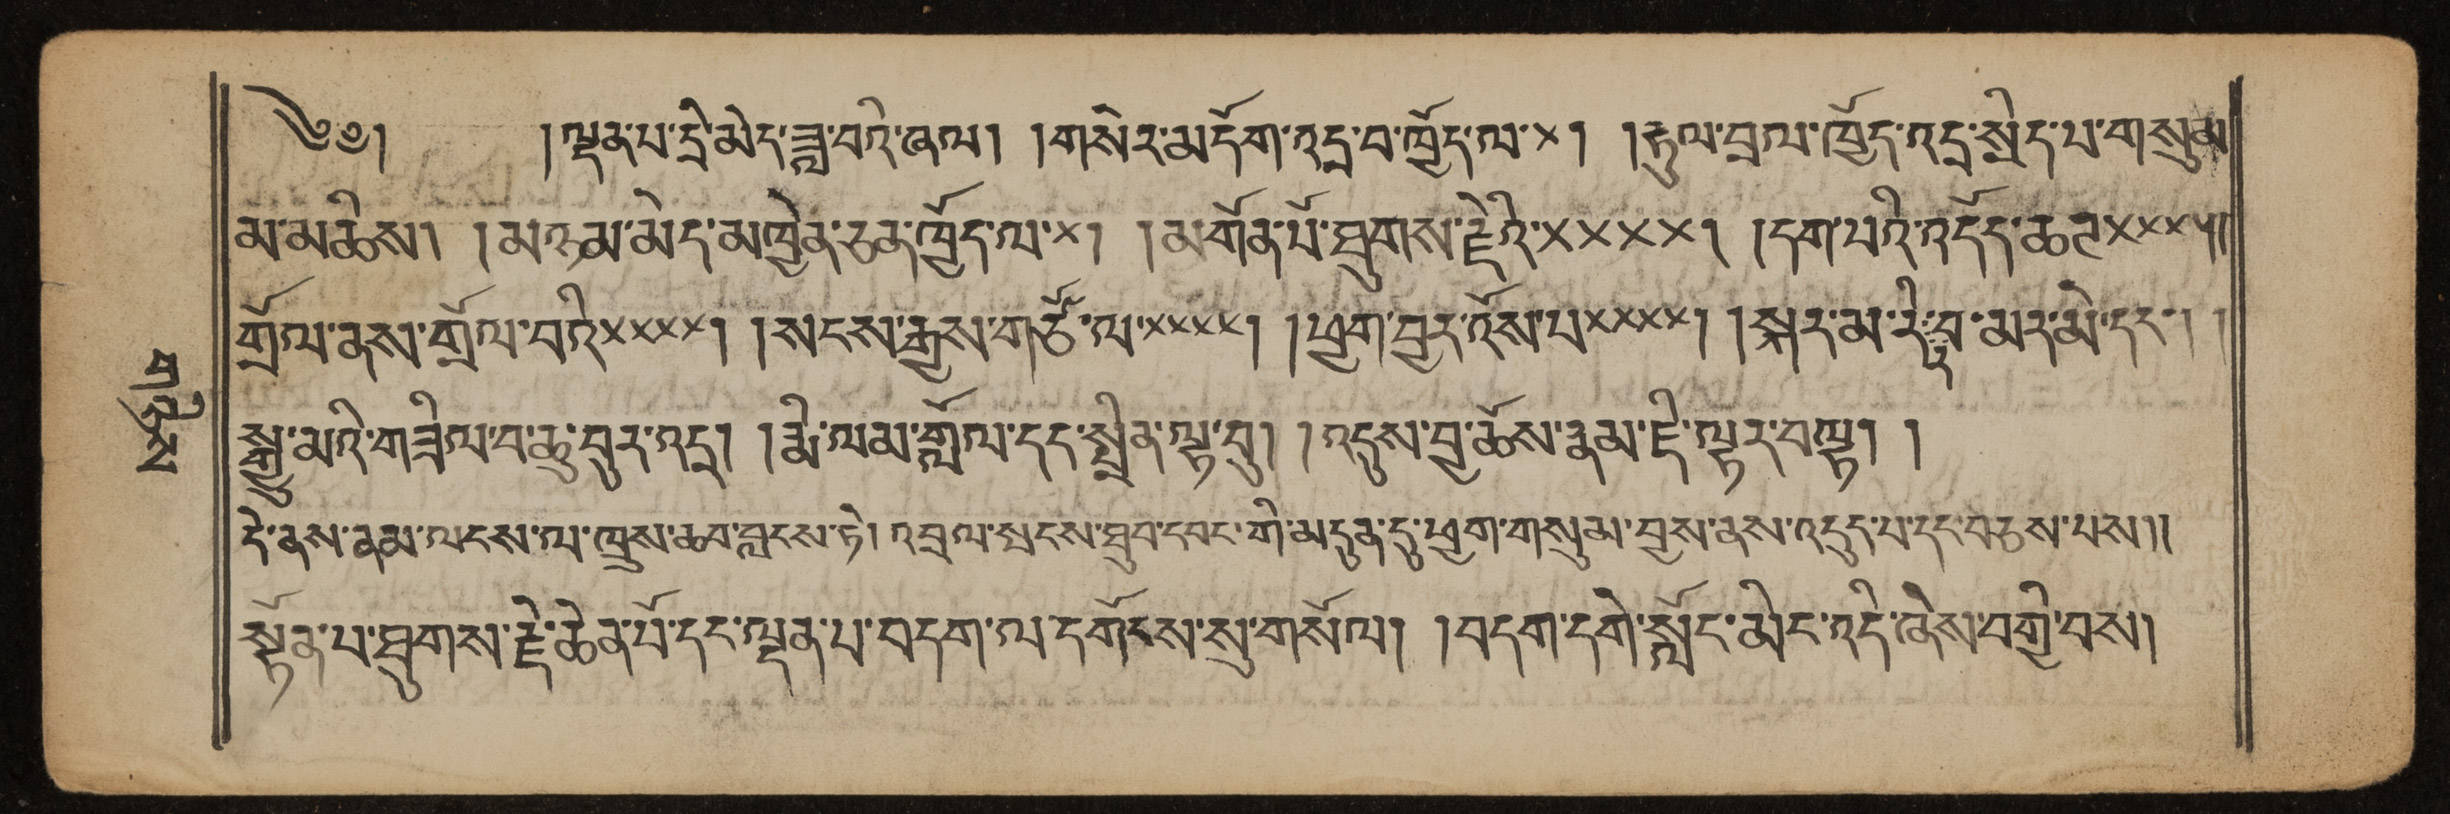 ༄༅། །ལྡན་པ་དྲི་མེད་ཟླ་བའི་ཞལ། །གསེར་མདོག་འདྲ་བ་ཁྱོད་ལ་×། །རྡུལ་བྲལ་ཁྱོད་འདྲ་སྲིད་པ་གསུམ
མ་མཆིས། །མཉམ་མེད་མཁྱེན་ཅན་ཁྱོད་ལ་×། །མགོན་པོ་ཐུགས་རྗེའི་××××། །དག་པའི་འདོད་ཆ
གྲོལ་ནས་གྲོལ་བའི××××། །སངས་རྒྱས་གཙོ་ལ་××××། །ཕྱག་བྱར་འོས་པ××××། །སྐར་མ་རི་བྲ་མར་མེ་དང་། །
སྒྱུ་མའི་གཟིལ་བ་ཆུ་བུར་འདྲ། །རྨི་ལམ་གློག་དང་སྤྲིན་ལྟ་བུ། །འདུས་བྱ་ཆོས་རྣམ་དེ་ལྟར་བལྟ། །
དེ་ནས་ནམ་ལངས་ལ་ཁྲུས་ཆབ་བླངས་ཏེ། འབྲལ་སྤངས་ཐུབ་དབང་གི་མདུན་དུ་ཕྱག་གསུམ་བྱས་ནས་འདུད་པ་དང་བཅས་པས།།
སྟོན་པ་ཐུགས་རྗེ་ཆེན་པོ་དང་ལྡན་པ་བདག་ལ་དགོངས་སུ་གསོལ། །བདག་དགེ་སློང་མིང་འདི་ཞེས་བགྱི་བས།